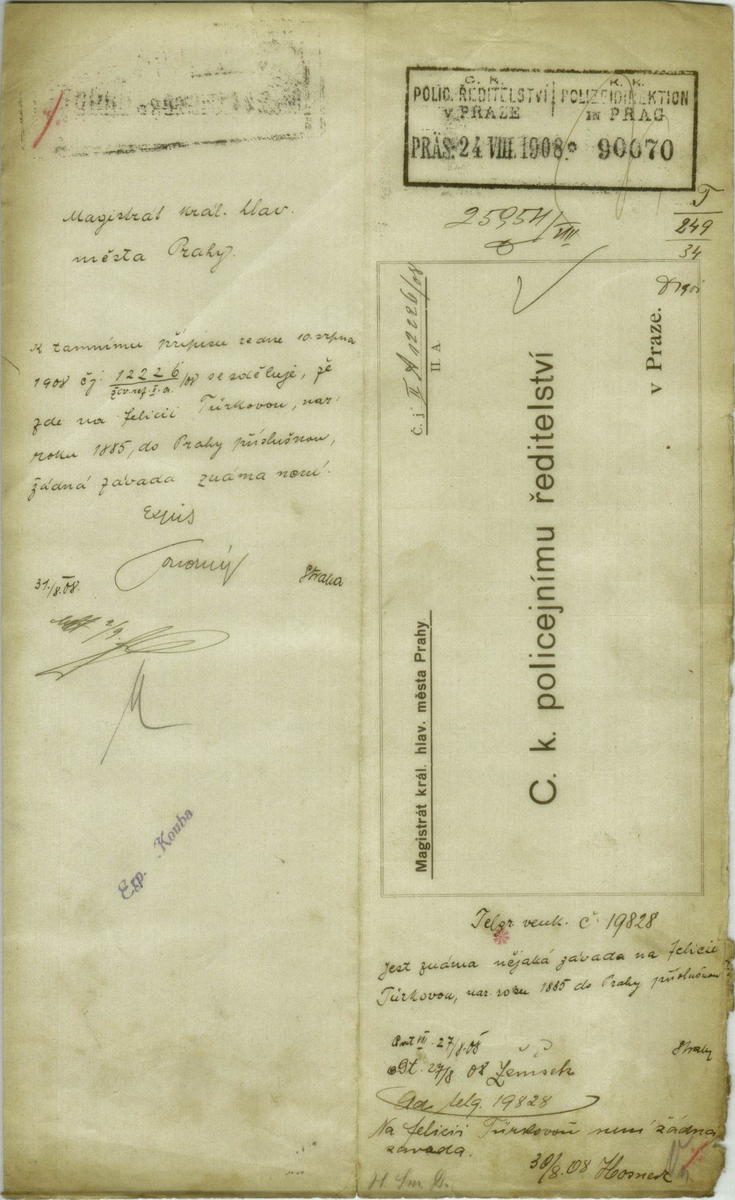 Magistrát král. hlav.
města Prahy.
K tamnímu přípisu ze dne 10. srpna
1908 čj. 12226/08 se sděluje, že
zde na Felicii Türkovou, nar.
roku 1885, do Prahy příslušnou,
žádná závada známa není.
Expis
31./8. 08.
Straka
2/9
Exp. Kouba
C. K. K. K.
POLIC. ŘEDITELSTVÍ POLIZEIDIREKTION
v PRAZE in PRAG
PRÄS: 24 VIII. 1908 90070
25954/VIII
T
249
34
Č. j. II A 12226/08
II. A
Magistrát král. hlav. města Prahy
C. k. policejnímu ředitelství
v Praze.
Telgr venk. č. 19828
Jest známa nějaká závada na Felicii
Türkovou, nar. roku 1885 do Prahy příslušnou
27/8 08
Straka
Dt. 27/8 08 Žemsek
Ad telg. 19828
Na Felicii Türkovou není žádna
závada.
30/8. 08 Hosnedl